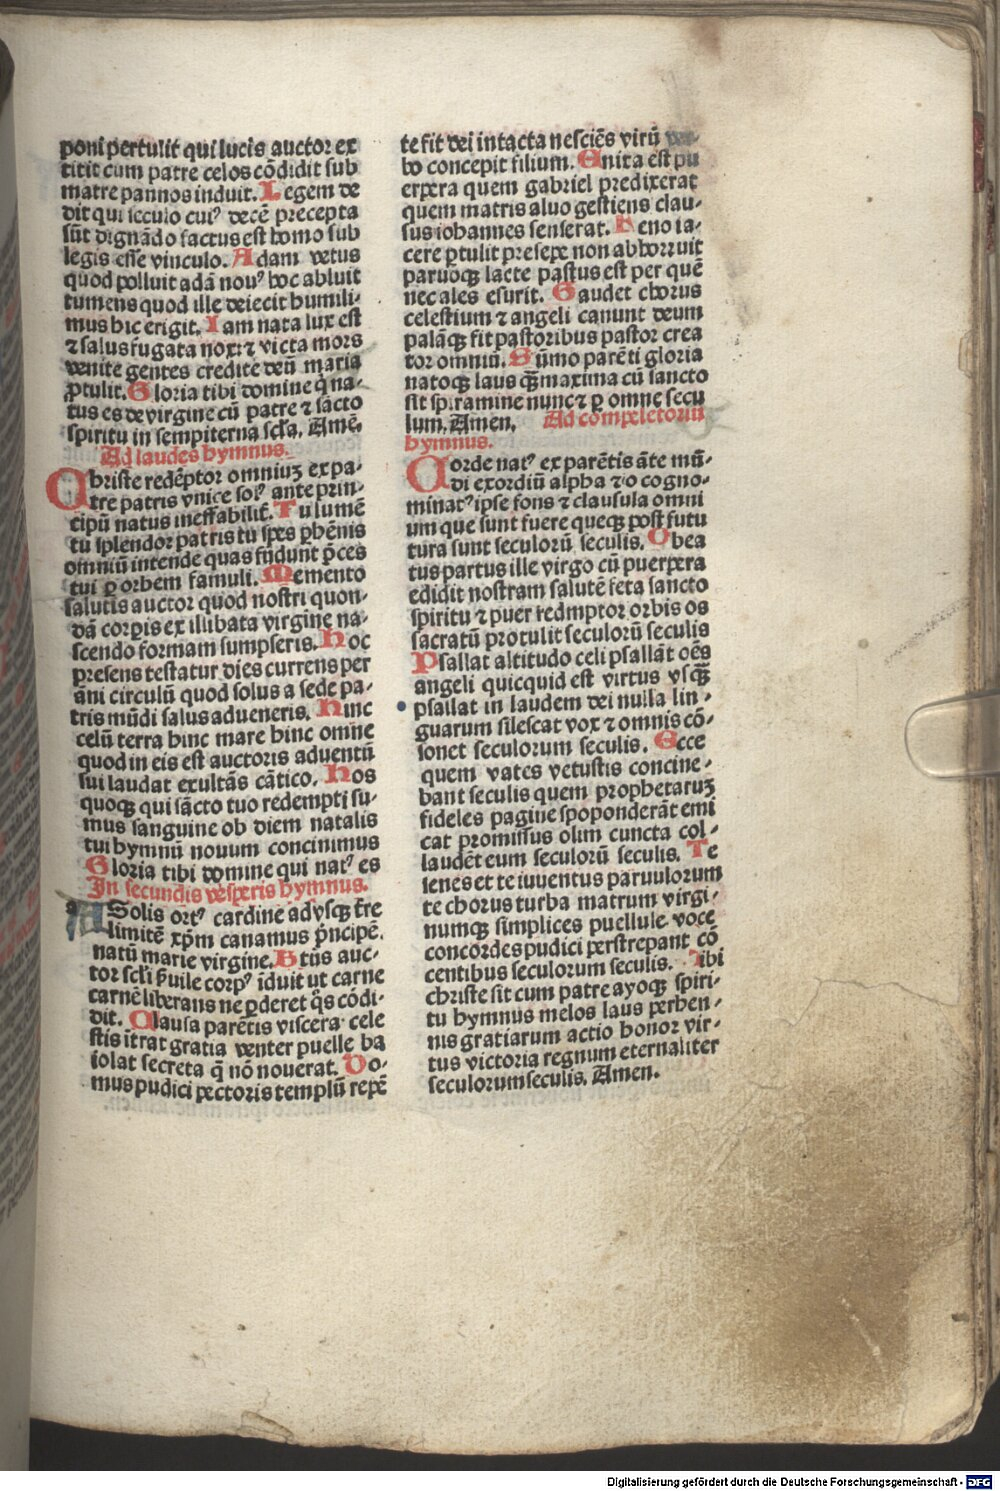 poni pertulit qui lucis auctor ex
titit cum patre celos cōdidit sub
matre pannos induit. Legem de
dit qui seculo cuiꝰ decē precepta
sūt dignādo factus est homo sub
legis esse vinculo. Adam vetus
quod polluit adā nouꝰ hoc abluit
tumens quod ille deiecit humili-
mus hic erigit. Iam nata lux est
⁊ salus fugata nox: ⁊ victa mors
venite gentes credite deū maria
ꝓtulit. Gloria tibi domine q̇ na-
tus es de virgine cū patre ⁊ sācto
spiritu in sempiterna scl̄a. Amē.
Ad laudes hymnus.
Christe redēptor omniuꝫ ex pa-
tre patris vnice solꝰ ante prin-
cipū natus ineffabilit̄. Tu lumē
tu splendor patris tu spes ꝑhēnis
omniū intende quas fūdunt p̄ces
tui ꝑ orbem famuli. Memento
salutis auctor quod nostri quon-
dā corꝑis ex illibata virgine na-
scendo formam sumpseris. Hoc
presens testatur dies currens per
āni circulū quod solus a sede pa-
tris mūdi salus adueneris. Hinc
celū terra hinc mare hinc omne
quod in eis est auctoris aduentū
sui laudat exultās cātico. Nos
quoqꝫ qui sācto tuo redempti su-
mus sanguine ob diem natalis
tui hymnū nouum concinimus
Gloria tibi domine qui natꝰ es
In secundis vesperis hymnus.
A Solis ortꝰ cardine advsqꝫ t̄re
limitē xp̄m canamus p̄ncipē.
natū marie virgine. Btūs auc-
tor scl̄i ẜuile corpꝰ īduit ut carne
carnē liberans ne ꝑderet q̄s cōdi-
dit. Clausa parētis viscera cele
stis ītrat gratia venter puelle ba
iolat secreta q̄ nō nouerat. Do-
mus pudici pectoris templū repē
te fit dei intacta nesciēs virū ver-
bo concepit filium. Enixa est pu
erpera quem gabriel predixerat
quem matris aluo gestiens clau-
sus iohannes senserat. Feno ia-
cere ꝑtulit presepe non abhorruit
paruoqꝫ lacte pastus est per quē
nec ales esurit. Gaudet chorus
celestium ⁊ angeli canunt deum
palāqꝫ fit pastoribus pastor crea
tor omniū. Sūmo parēti gloria
natoqꝫ laus qꝫ̄ maxima cū sancto
sit spiramine nunc ⁊ ꝑ omne secu
lum. Amen. Ad completoriū
hymnus.
Corde natꝰ ex parētis āte mū-
di exordiū alpha ⁊ o cogno-
minatꝰ ipse fons ⁊ clausula omni
um que sunt fuere queqꝫ post futu
tura sunt seculorū seculis. O bea
tus partus ille virgo cū puerpera
edidit nostram salutē feta sancto
spiritu ⁊ puer redmptor orbis os
sacratū protulit seculorū seculis
Psallat altitudo celi psallāt oēs
angeli quicquid est virtus vsqꝫ̄
psallat in laudem dei nulla lin-
guarum silescat vox ⁊ omnis cō-
sonet seculorum seculis. Ecce
quem vates vetustis concine-
bant seculis quem prophetaruꝫ
fideles pagine spoponderāt emi
cat promissus olim cuncta col-
laudēt eum seculorū seculis. Te
senes et te iuuentus paruulorum
te chorus turba matrum virgi-
numqꝫ simplices puellule voce
concordes pudici perstrepant cō
centibus seculorum seculis. Tibi
christe sit cum patre ayoqꝫ spiri-
tu hymnus melos laus perhen-
nis gratiarum actio honor vir-
tus victoria regnum eternaliter
seculorum seculis. Amen.
Digitalisierung gefördert durch die Deutsche Forschungsgemeinschaft - DFG